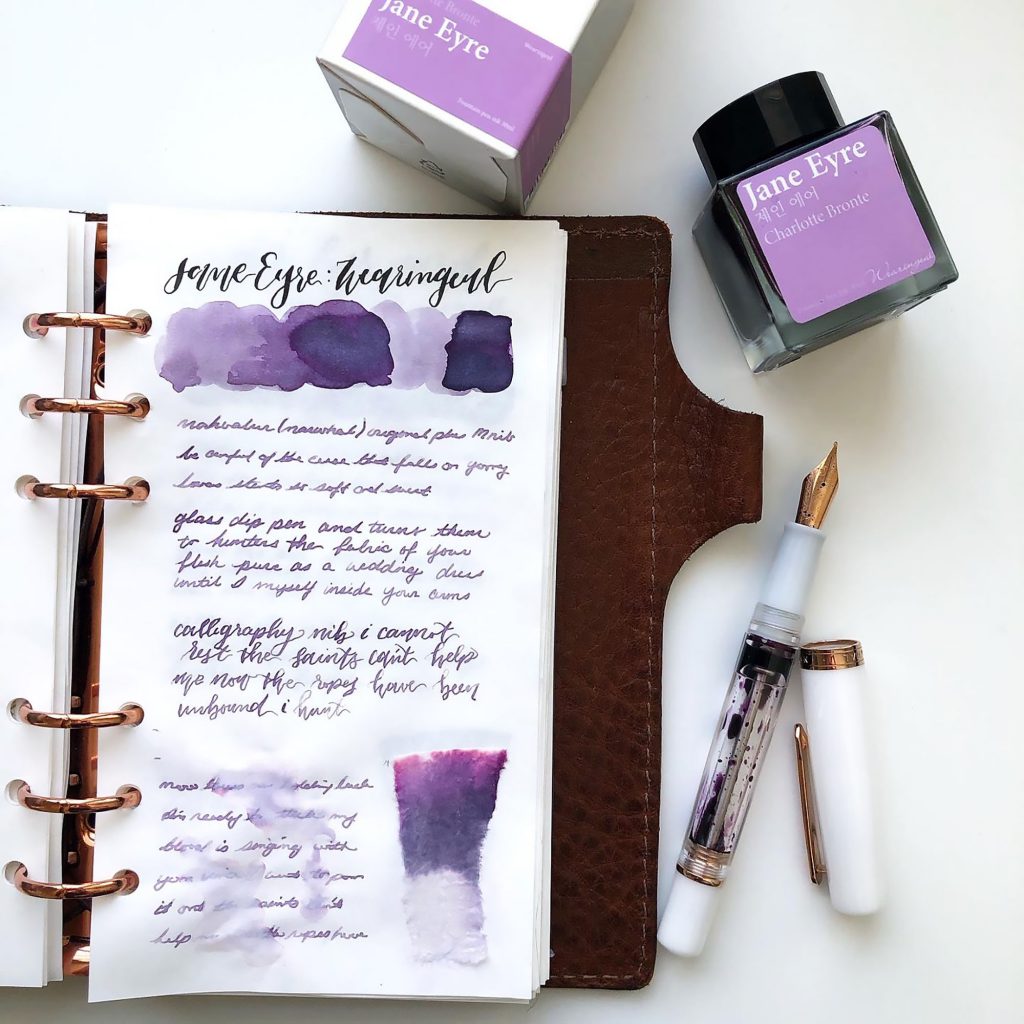 Charlotte Bronte
Jane Eyre
제인 에어
Wearingeul
Fountain pen ink 30ml
Jane Eyre
제인 에어
Charlotte Bronte
Wearingeul
Jane Eyre: Wearingeul
nahvalur (narwhal) original plus M nib
be careful of the curse that falls on young
lovers starts so soft and sweet
glass dip pen and turns them
to hunters the fabric of your
flesh pure as a wedding dress
until I myself inside your arms
calligraphy nib i cannot
rest the saints can't help
me now the ropes have been
unbound i hunt
now there's no holding back
i'm ready to my
blood is singing with
your voice I want to pour
it out the saints can't
help me the ropes have